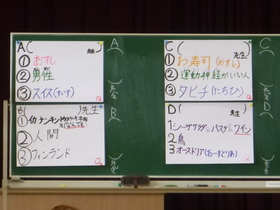 A(
①おすし
②男性
③スイス(すいす)
B(
)先生
②人間
③フィンランド
C(
)先生
①お寿司(おすし)
②運動神経がいい人
③タヒチ(にちひ)
D(
)先生
1シーザーサラダorパスタorワイン
2鳥
3オーストリア(おーすとりあ)
A
B
C
D